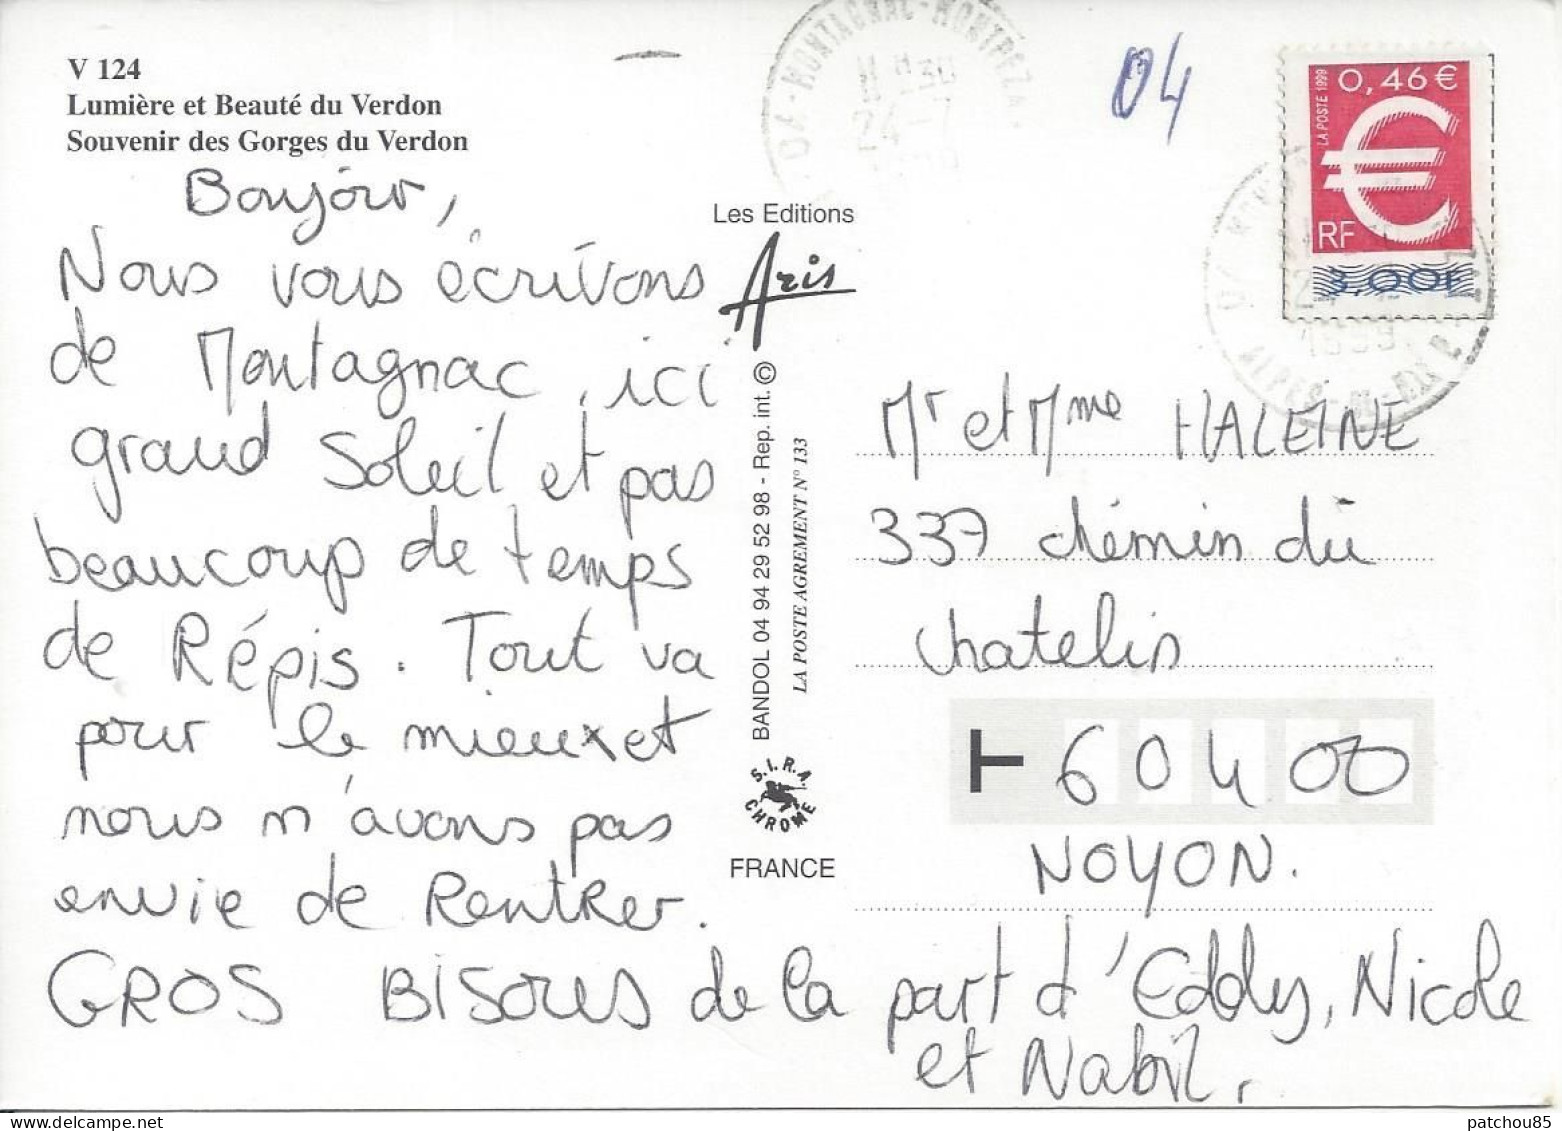 V 124
Lumière et Beauté du Verdon
Souvenir des Gorges du Verdon
Bonjour,
Nous vous écrivons
de Montagnac, ici
grand Soleil et pas
beaucoup de temps
de Répis. Tout va
pour le mieux et
nous n'avons pas
envie de Rentrer.
GROS BISOUS de la part d'Eddy, Nicole
et Nabil.
Les Editions
Aris
BANDOL 04 94 29 52 98 - Rep. int. ©
LA POSTE AGREMENT N° 133
S.I.R.A.
CHROME
FRANCE
04-MONTAGNAC-MONTPEZA
24-7
04
LA POSTE 1999
0,46 €
€
RF
3,00F
1999
ALPES-DE-HTE P.
Mr et Mme HALEINE
337 chémin du
chatelis
60400
NOYON.
patchou85